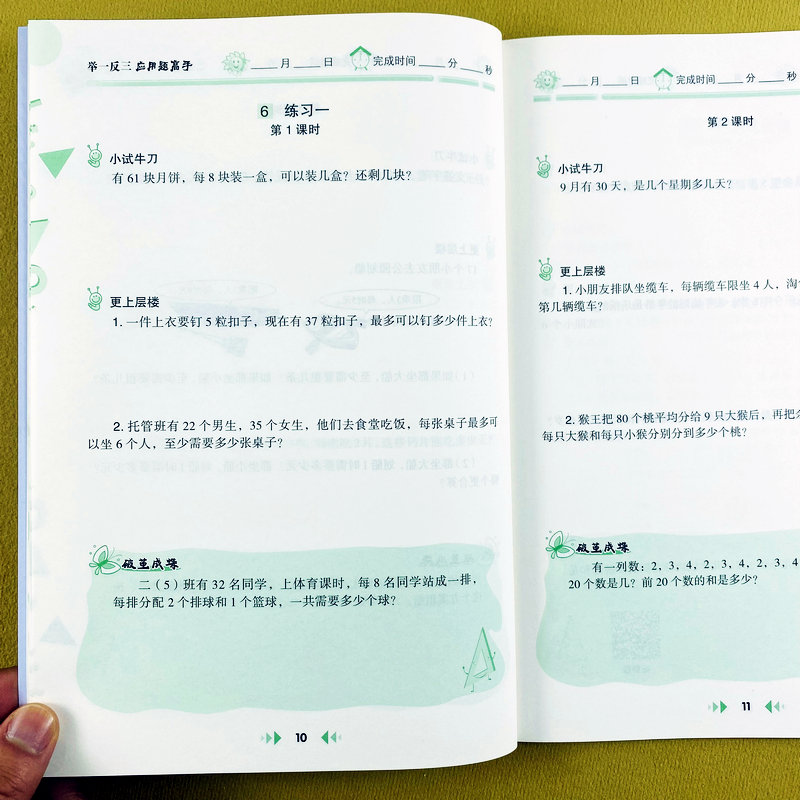 举一反三 应用题高手
____月____日 完成时间____分____秒
6 练习一
第1课时
小试牛刀
有 61 块月饼，每 8 块装一盒，可以装几盒？还剩几块？
更上层楼
1. 一件上衣要钉 5 粒扣子，现在有 37 粒扣子，最多可以钉多少件上衣？
2. 托管班有 22 个男生，35 个女生，他们去食堂吃饭，每张桌子最多可
以坐 6 个人，至少需要多少张桌子？
破茧成蝶
二（5）班有 32 名同学，上体育课时，每 8 名同学站成一排，
每排分配 2 个排球和 1 个篮球，一共需要多少个球？
10
____月____日 完成时间____分____秒
第2课时
小试牛刀
9 月有 30 天，是几个星期多几天？
更上层楼
1. 小朋友排队坐缆车，每辆缆车限坐 4 人，淘
第几辆缆车？
2. 猴王把 80 个桃平均分给 9 只大猴后，再把
每只大猴和每只小猴分别分到多少个桃？
破茧成蝶
有一列数：2，3，4，2，3，4，2，3，4
20 个数是几？前 20 个数的和是多少？
11